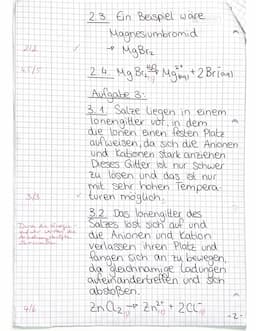 2.3 Ein Beispiel wäre
Magnesiumbromid
2/2 → MgBr₂
4,5/5 2.4 MgBr₂ → Mg²⁺(aq) + 2Br⁻(aq)
Aufgabe 3:
3.1 Salze liegen in einem
Ionengitter vor, in dem
die Ionen einen festen Platz
aufweisen, da sich die Anionen
und Kationen stark anziehen
Dieses Gitter ist nur schwer
zu lösen und das ist nur
mit sehr hohen Tempera-
3/3 turen möglich.
3.2 Das Ionengitter des
Salzes löst sich auf und
die Anionen und Kation
verlassen ihren Platz und
fangen sich an zu bewegen,
da gleichnamige Ladungen
aufeinandertreffen und sich
abstoßen.
ZnCl₂ → Zn²⁺ + 2Cl⁻
-2-